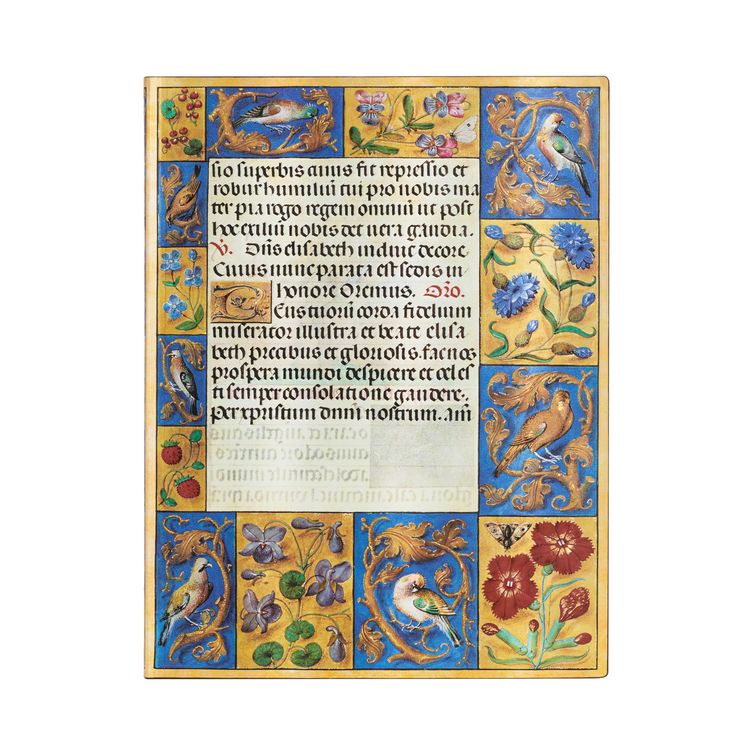 sio superbis cuius fit repressio et
robur humiliū tui pro nobis ma
ter pia rogo regem omniū ut post
hoc exiliū nobis det uera gaudia.
V. Dn̄s elisabeth induit decore
Cuius nunc parata est sedis in
honore Oremus. Oro.
Deus tuorū corda fidelium
miserator illustra et beate elisa
beth precibus et gloriosis. fac nos
prospera mundi despicere et celes
ti semper consolatione gaudere.
Per xpristum dnm̄ nostrum. Am̄